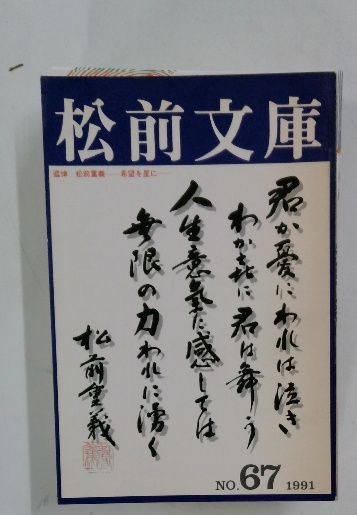 松前文庫
追悼 松前重義――希望を星に――
君が憂にわれは泣き
わが喜に君は舞う
人生意氣に感しては
無限の力われに湧く
松前重義
NO.67 1991